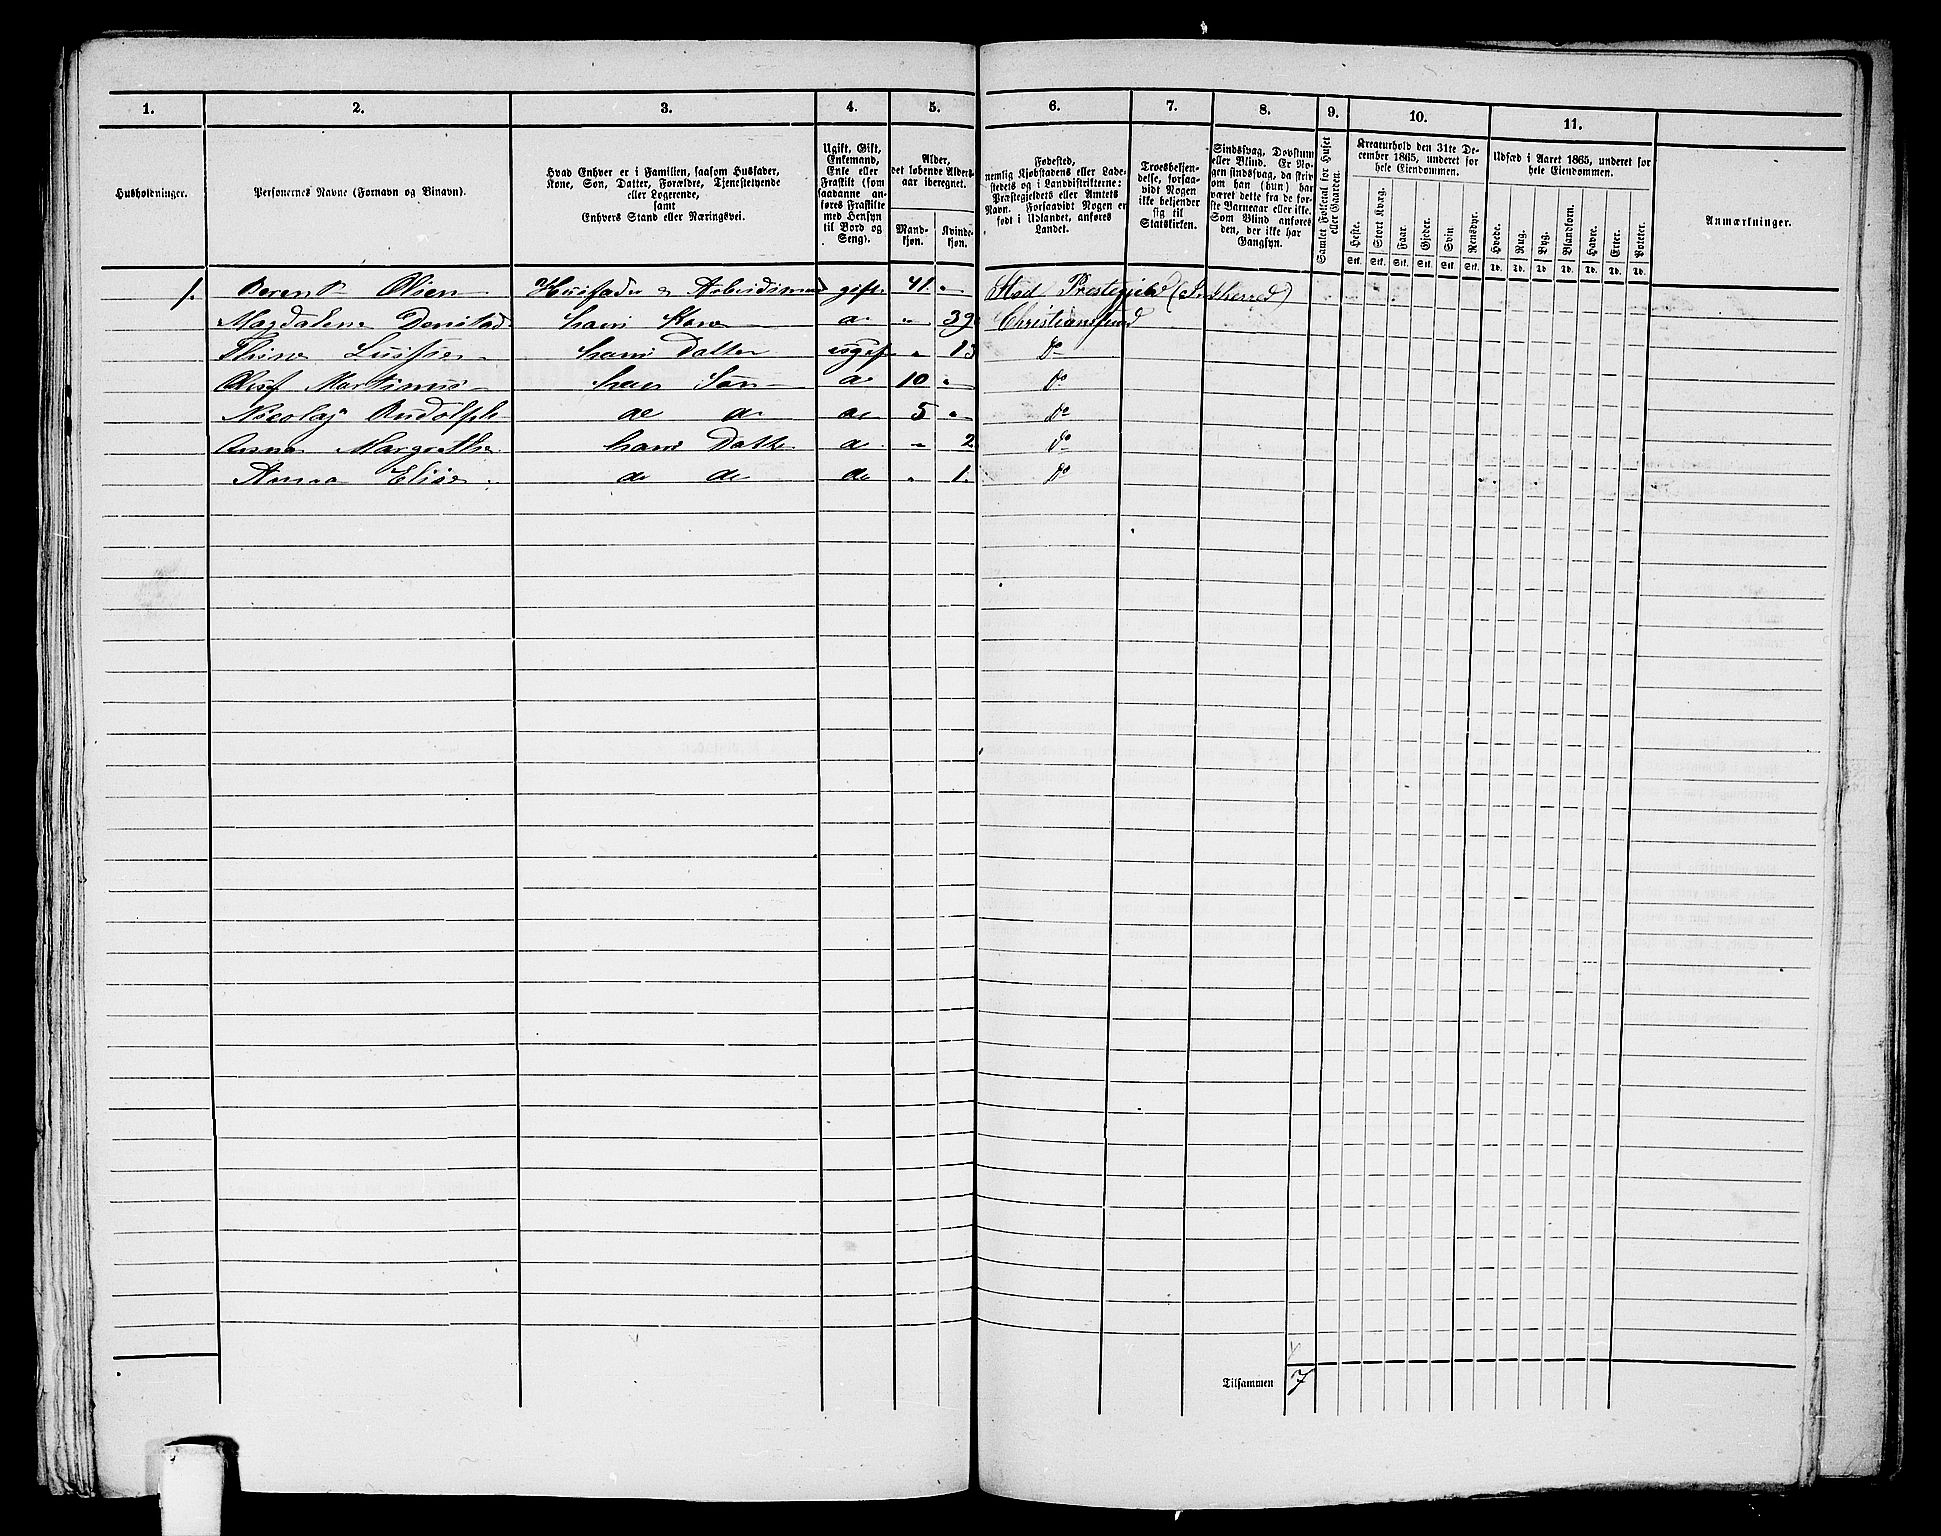 1. 2. 3. 4. 5. 6. 7. 8. 9. 10. 11.
Husholdninger.
Personernes Navne (Fornavn og Binavn).
Hvad Enhver er i Familien, saasom Husfader,
Kone, Søn, Datter, Forældre, Tjenestetyende
eller Logerende,
samt
Enhvers Stand eller Næringsvei.
Ugift, Gift,
Enkemand,
Enke eller
Fraskilt (som
saadanne an-
føres Fraskilte
med Hensyn
til Bord og
Seng).
Alder,
det løbende Alders-
aar iberegnet.
Mand-
kjøn.
Kvinde-
kjøn.
Fødested,
nemlig Kjøbstadens eller Lade-
stedets og i Landdistrikterne:
Præstegjeldets eller Amtets
Navn. Forsaavidt Nogen er
født i Udlandet, anføres
Landet.
Troesbekjen-
delse, forsaa-
vidt Nogen
ikke bekjender
sig til
Statskirken.
Sindssvag, Døvstum
eller Blind. Er No-
gen sindssvag, da skriv
om han (hun) har
været dette fra de før-
ste Barneaar eller ikke.
Som Blind anføres
den, der ikke har
Gangsyn.
Samlet Folketal for Huset
eller Gaarden.
Kreaturhold den 31te De-
cember 1865, underet for
hele Eiendommen.
Heste. Stort Kvæg. Faar. Gjeder. Svin. Rensdyr.
Stk. Stk. Stk. Stk. Stk. Stk.
Udsæd i Aaret 1865, underet for
hele Eiendommen.
Hvede. Rug. Byg. Blandkorn. Havre. Erter. Poteter.
Td. Td. Td. Td. Td. Td. Td.
Anmærkninger.
1. Berent Olsen Husfader & Arbeidsmand gift 41. " Stod Prestegjeld
Magdalena hans Kone " 39 Christiansund
Luise hans Datter ugift " 13 Do
Martinus hans Søn 10 " Do
Nicolay Rudolph do do do 5 " Do
Anna Margrethe hans Datter " 2 Do
Anna Elise do do do " 1. Do
Tilsammen 7